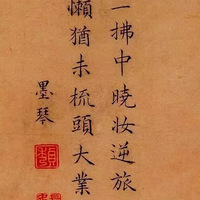 一拂中曉妆逆旅
懶猶未梳頭大業
墨琴